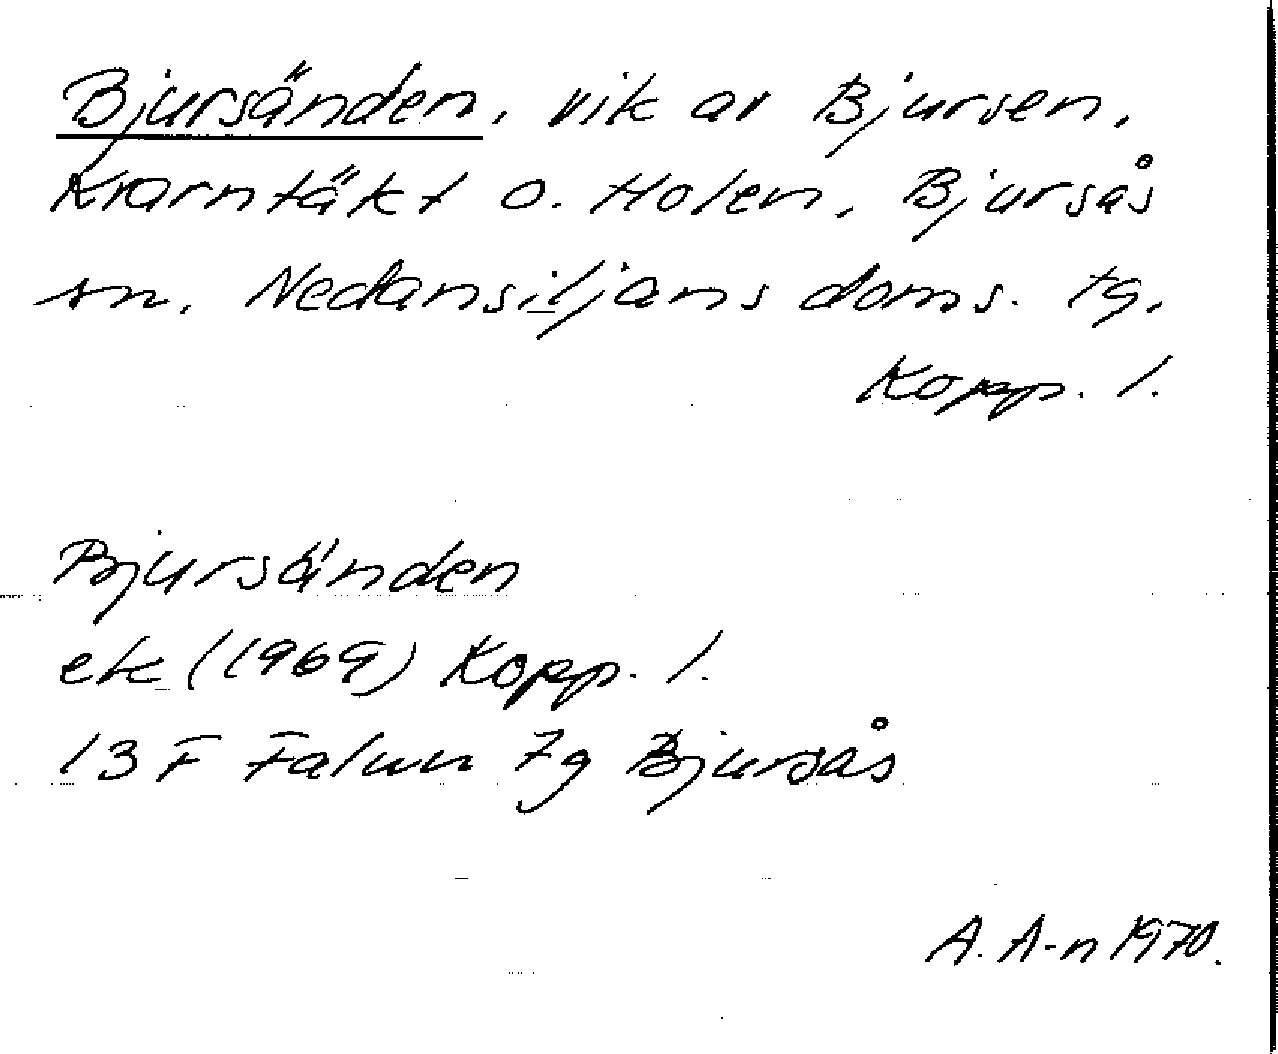 Bjursänden, vik av Bjursen,
Kvarntäkt o. Holen, Bjursås
sn. Nedansiljans doms. tg.
Kopp. l.
Bjursänden
ek (1969) Kopp. l.
13 F Falun 7g Bjursås
A. A-n 1970.